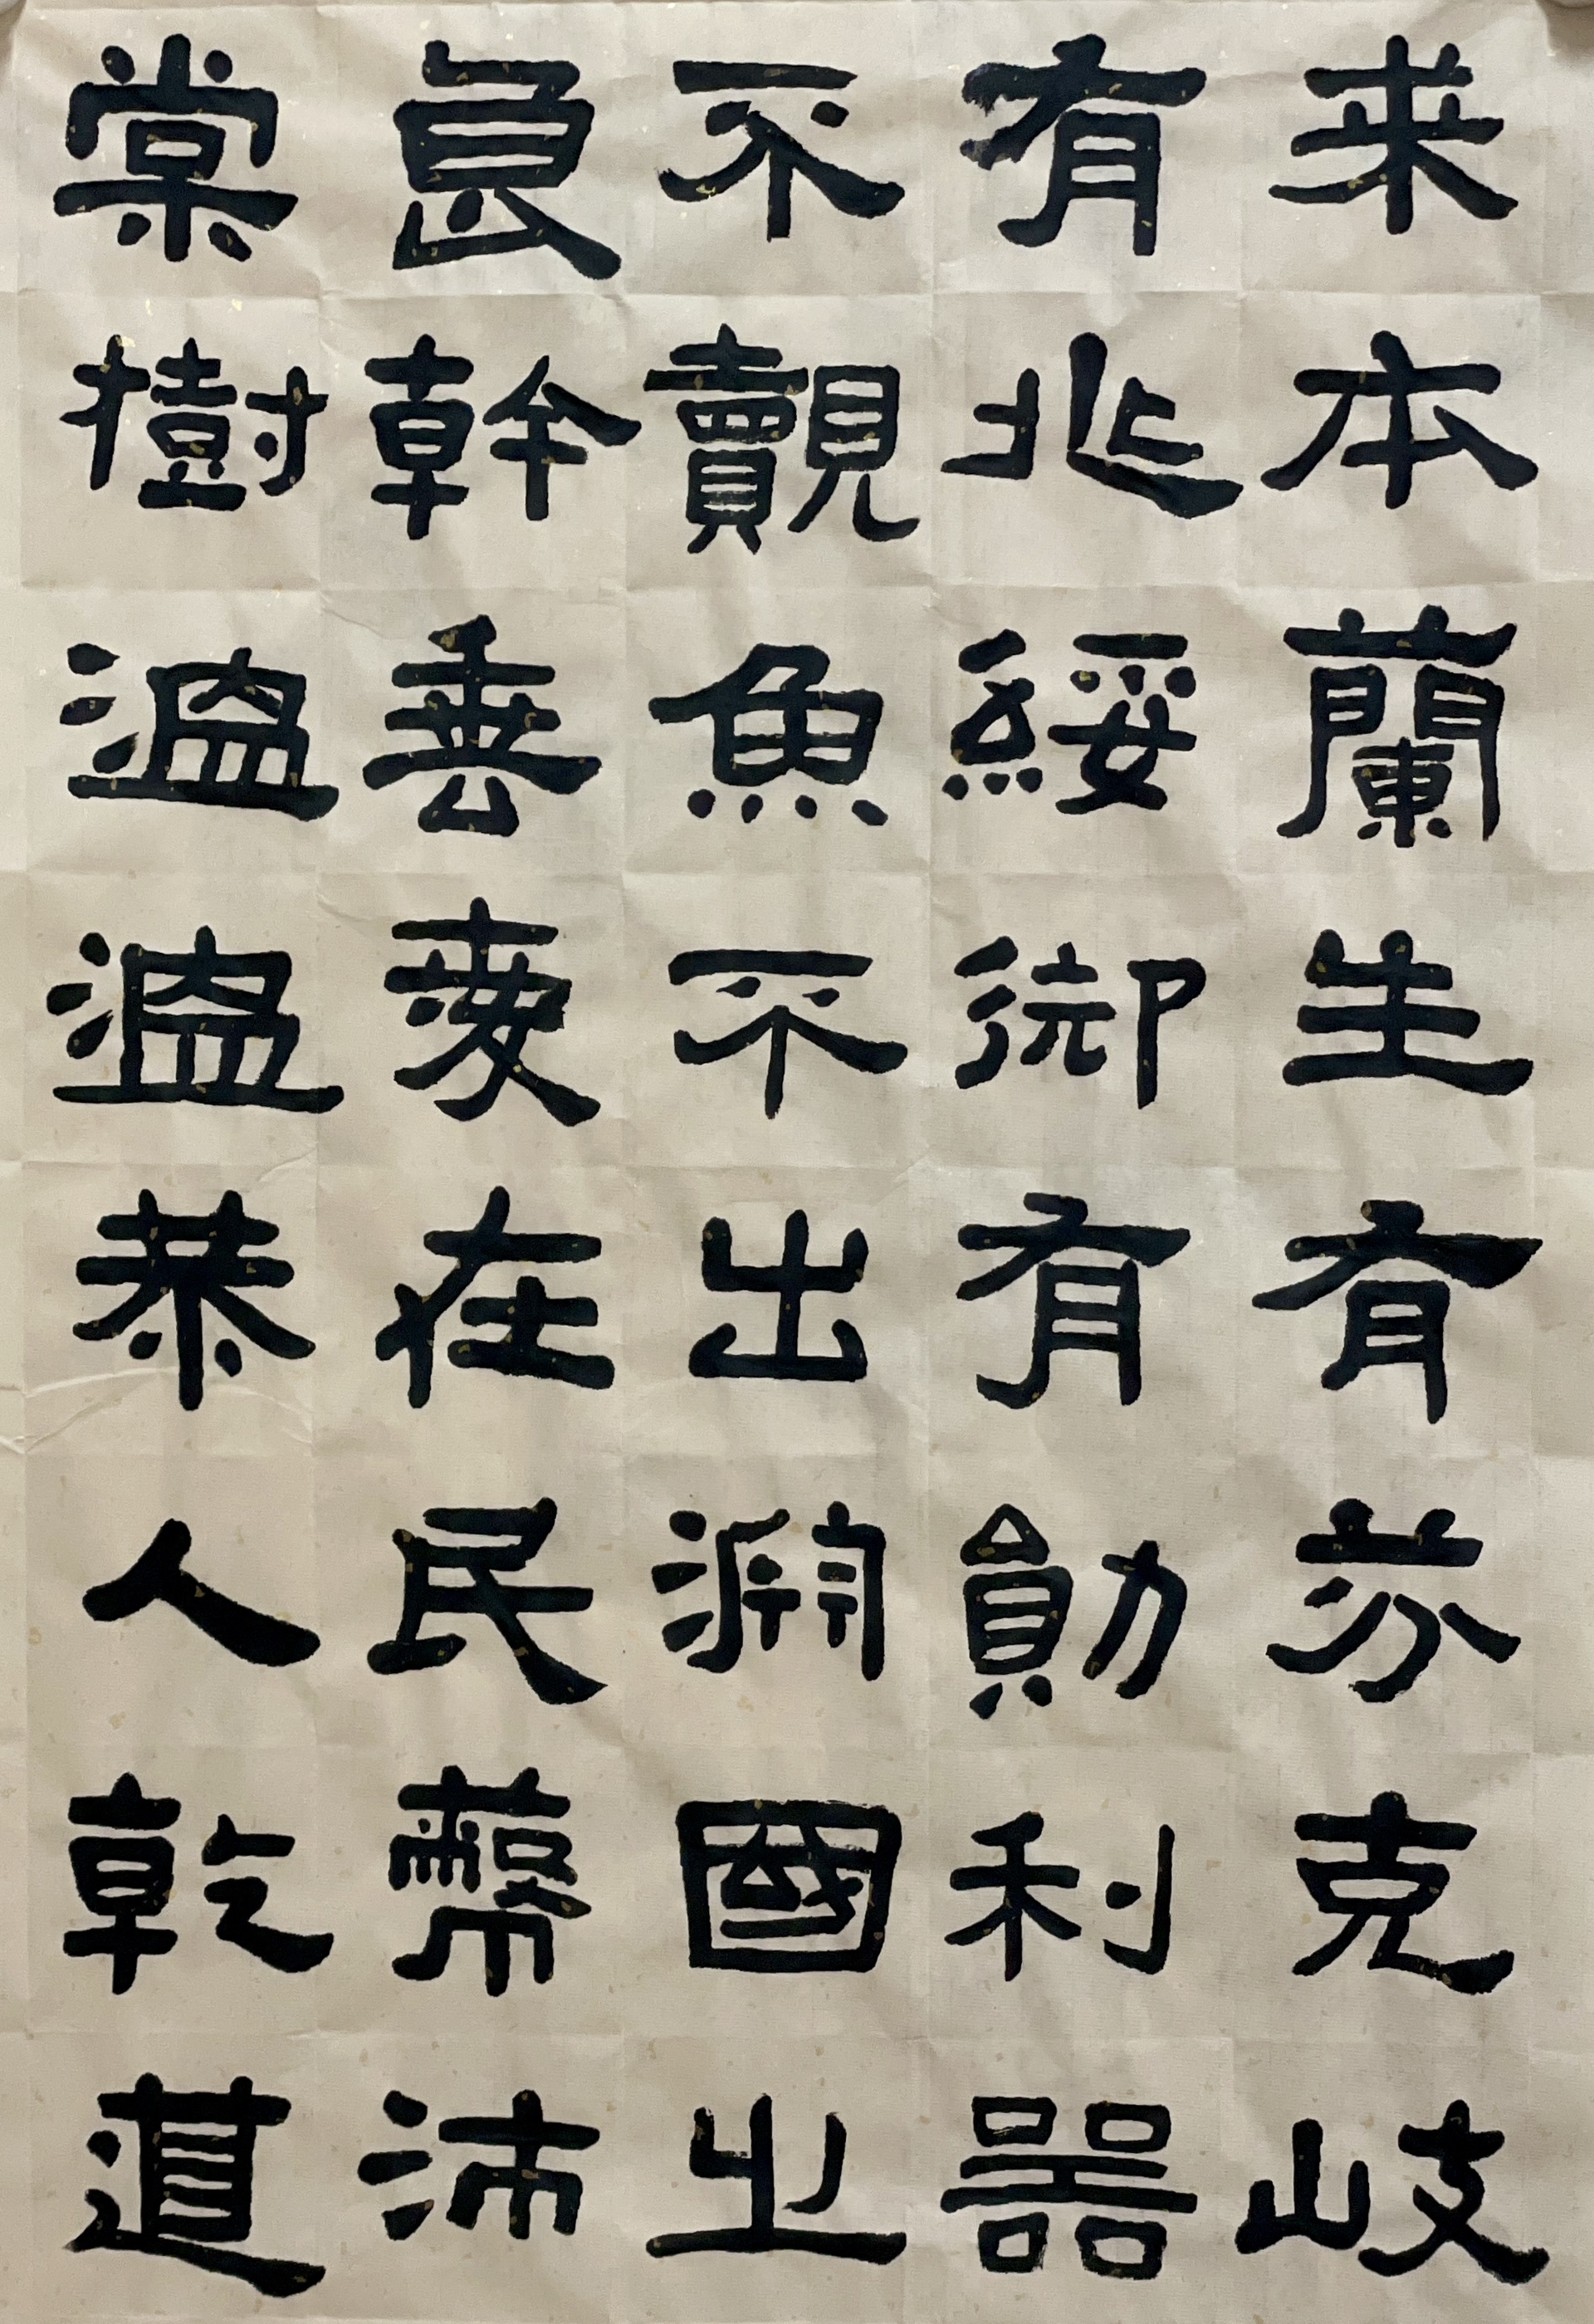 来本蘭生有芬克岐
有兆綏御有勛利器
不覿魚不出淵國之
良幹垂愛在民蔽沛
棠樹溫溫恭人乾道